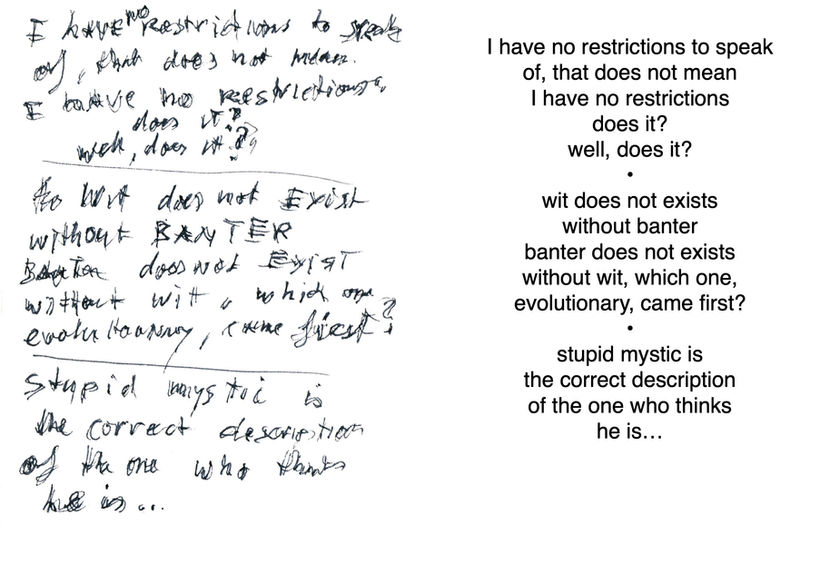 I have no restrictions to speak
of, that does not mean.
I have no restrictions,
does it?
well, does it?
wit does not Exist
without BANTER
Banter does not EXIST
without wit, which one
evolutionary, came first?
Stupid mystic is
the correct description
of the one who thinks
he is...
I have no restrictions to speak
of, that does not mean
I have no restrictions
does it?
well, does it?
•
wit does not exists
without banter
banter does not exists
without wit, which one,
evolutionary, came first?
•
stupid mystic is
the correct description
of the one who thinks
he is…